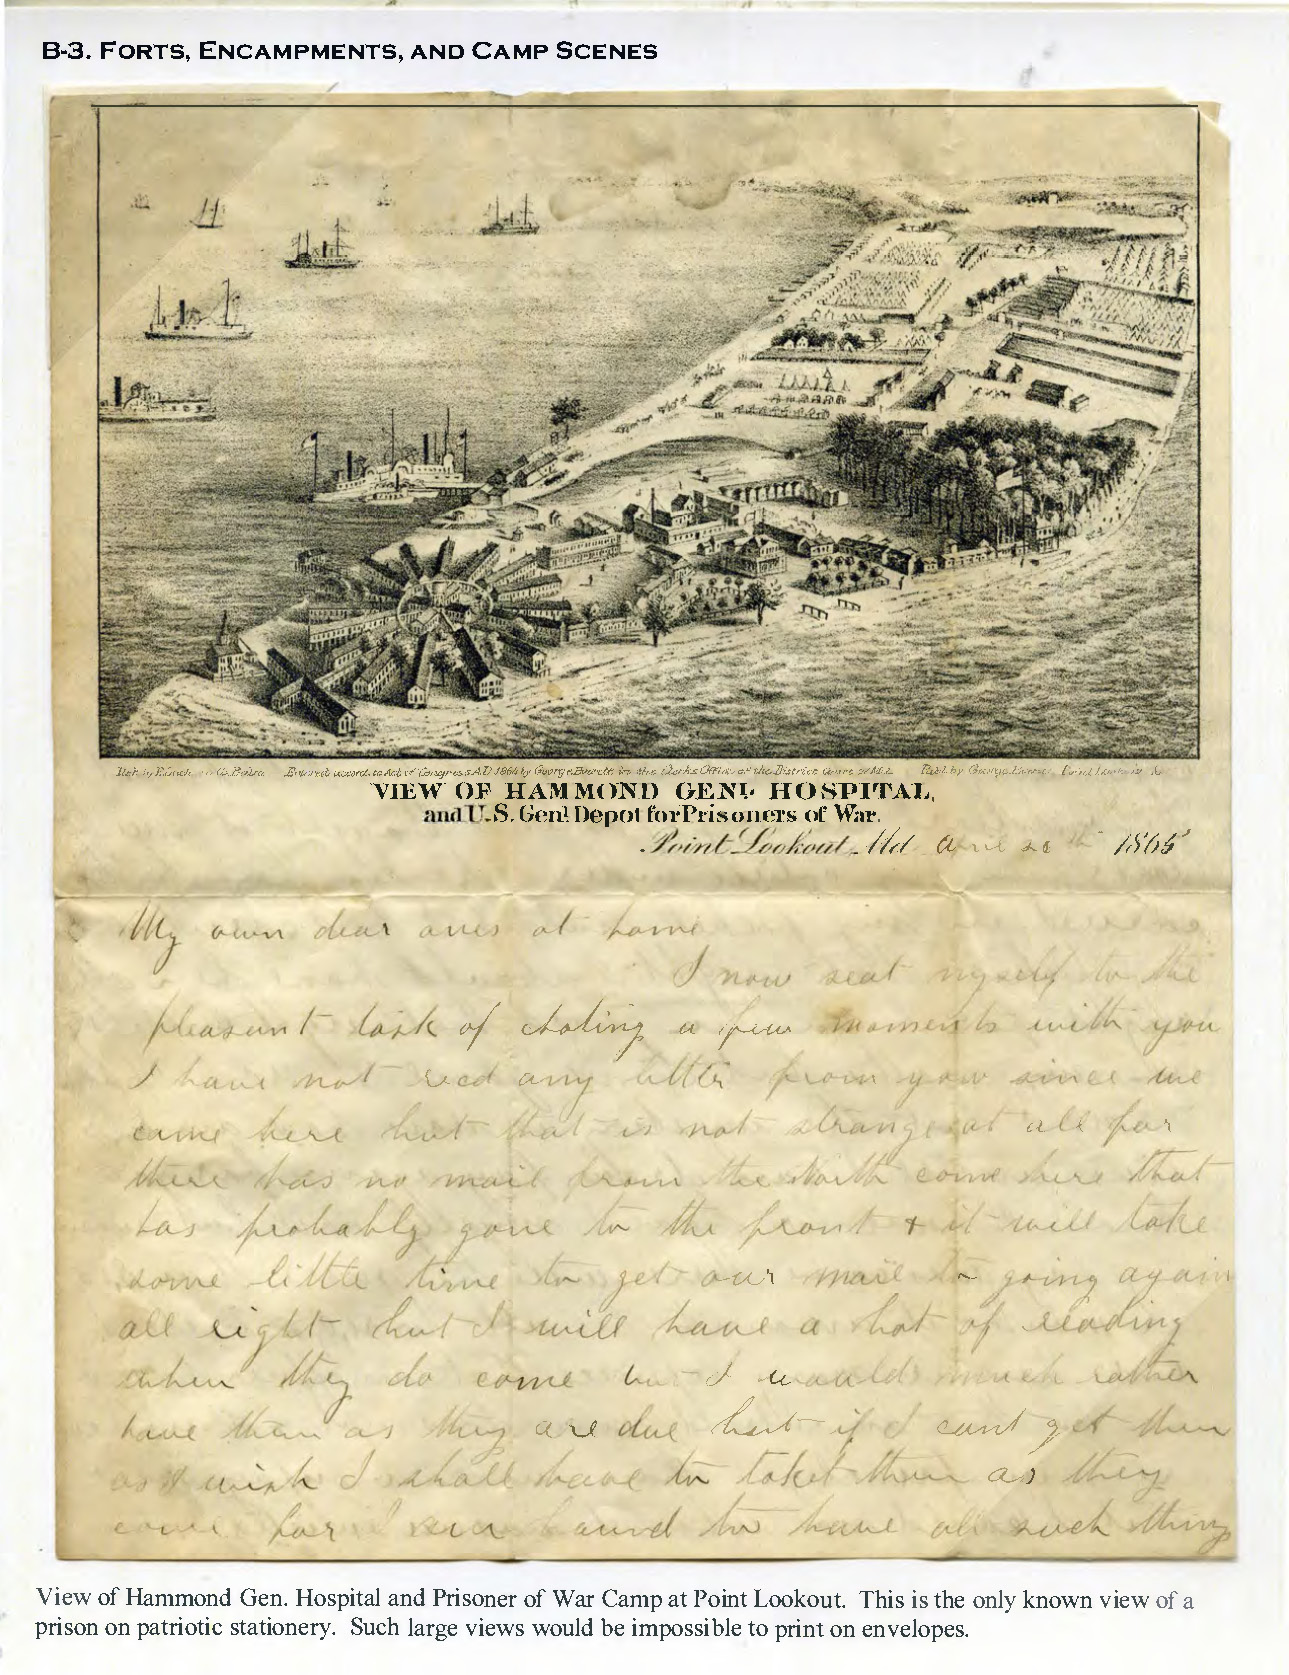 B-3. Forts, Encampments, and Camp Scenes
Entered accord. to Act of Congress A.D. 1864 by George Everett in the Clerks Office of the District Court of Md. Publ. by George Everett Point Lookout
VIEW OF HAMMOND GENL. HOSPITAL,
and U.S. Genl Depot for Prisoners of War.
Point Lookout, Md April 1865
My own dear ones at home
I now seat myself to the
pleasant task of chating a few moments with you
I have not recd any letter from you since we
came here but that is not strange at all for
there has no mail from the North come here that
has probably gone to the front + it will take
some little time to get our mail to going again
all right but I will have a hot of reading
when they do come but I would much rather
have them as they are due but if I cant get them
as I wish I shall have to taket them as they
come for I am bound to have all such thing
View of Hammond Gen. Hospital and Prisoner of War Camp at Point Lookout. This is the only known view of a
prison on patriotic stationery. Such large views would be impossible to print on envelopes.